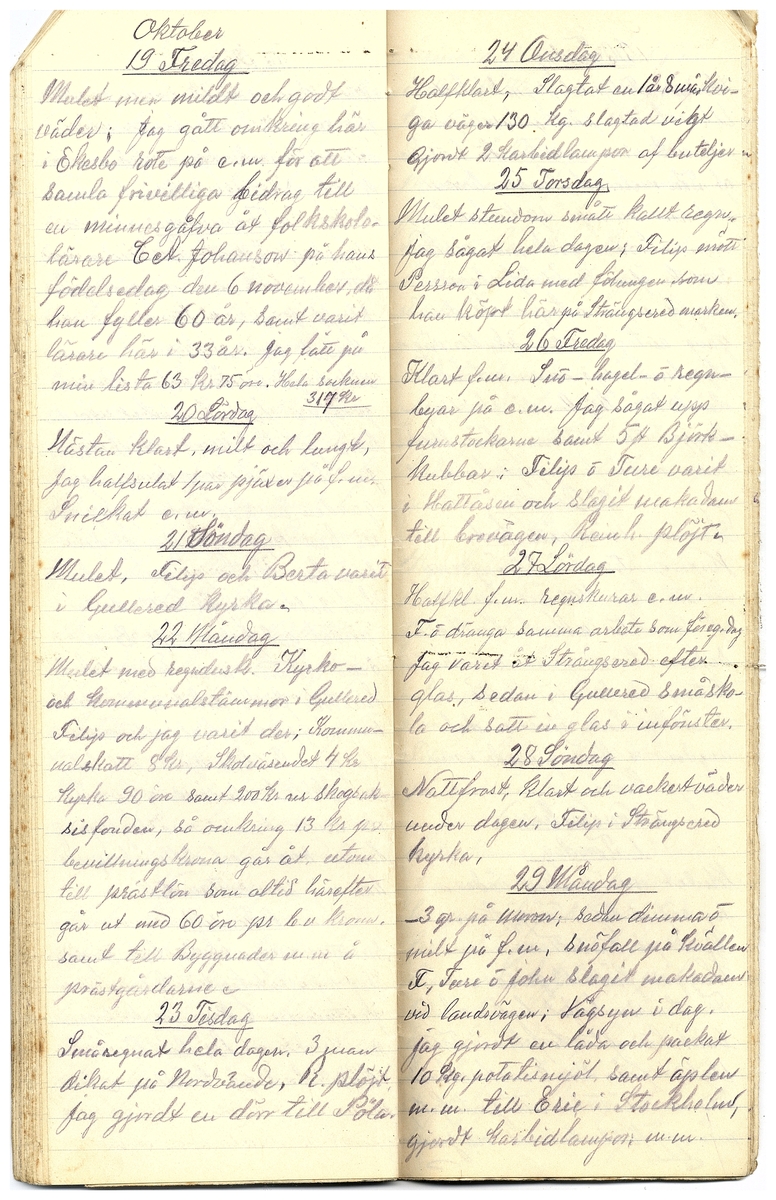 Oktober
19 Fredag
Mulet men mildt och godt
väder; Jag gått omkring här
i Ekesbo rote på e.m. för att
samla frivilliga bidrag till
en minnesgåfva åt folkskolo-
lärare C.A. Johanson på hans
födelsedag den 6 november, då
han fyller 60 år, samt varit
lärare här i 33 år. Jag fått på
min lista 63 kr 75 öre. Hela socknen
317 kr
20 Lördag
Nästan klart, milt och lungt,
Jag halfsulat 1 par pjäxer på f.m.
Snickat e.m.
21 Söndag
Mulet, Filip och Berta varit
i Gullered kyrka.
22 Måndag
Mulet med regndusk. Kyrko-
och Kommunalstämmor i Gullered
Filip och jag varit der; Kommu-
nalskatt 8 kr, Skolväsendet 4 kr
Kyrka 90 öre samt 200 kr ur skogsak-
sisfonden, så omkring 13 kr pr
bevillningskrona går åt, utom
till prästlön som altid härefter
går ut med 60 öre pr bev krona.
samt till Byggnader m.m å
prästgårdarne
23 Tisdag
Småregnat hela dagen. 3 man
dikat på Nordvände, R. plöjt.
Jag gjordt en dörr till Pöla.
24 Onsdag
Halfklart, Slagtat en 1 år 8 mån. kvi-
ga väger 130 kg. slagtad vigt
Gjordt 2 Karbidlampor af buteljer
25 Torsdag
Mulet stundom smått kallt regn.
Jag sågat hela dagen; Filip mött
Persson i Lida med fölungen som
han köpt här på Strängsered marken.
26 Fredag
Klart f.m. Snö- hagel- ö regn-
byar på e.m. Jag sågat upp
furustockarne samt 5 st Björk-
kubbar; Filip ö Ture varit
i Kattåsen och slagit makadam
till brovägen, Reinh. plöjt.
27 Lördag
Halfkl. f.m. regnskurar e.m.
F. ö dränga samma arbete som föreg. dag
Jag varit åt Strängsered efter
glas, sedan i Gullered småsko-
la och satt in glas i infönster.
28 Söndag
Nattfrost, klart och vackert väder
under dagen. Filip i Strängsered
kyrka,
29 Måndag
-3 gr. på morron; sedan dimma ö
milt på f.m, snöfall på kvällen
F, Ture ö John slagit makadam
vid landsvägen; Vägsyn i dag.
Jag gjordt en låda och packat
10 kg. potatismjöl samt äplen
m.m. till Eric i Stockholm,
gjordt karbidlampor m.m.